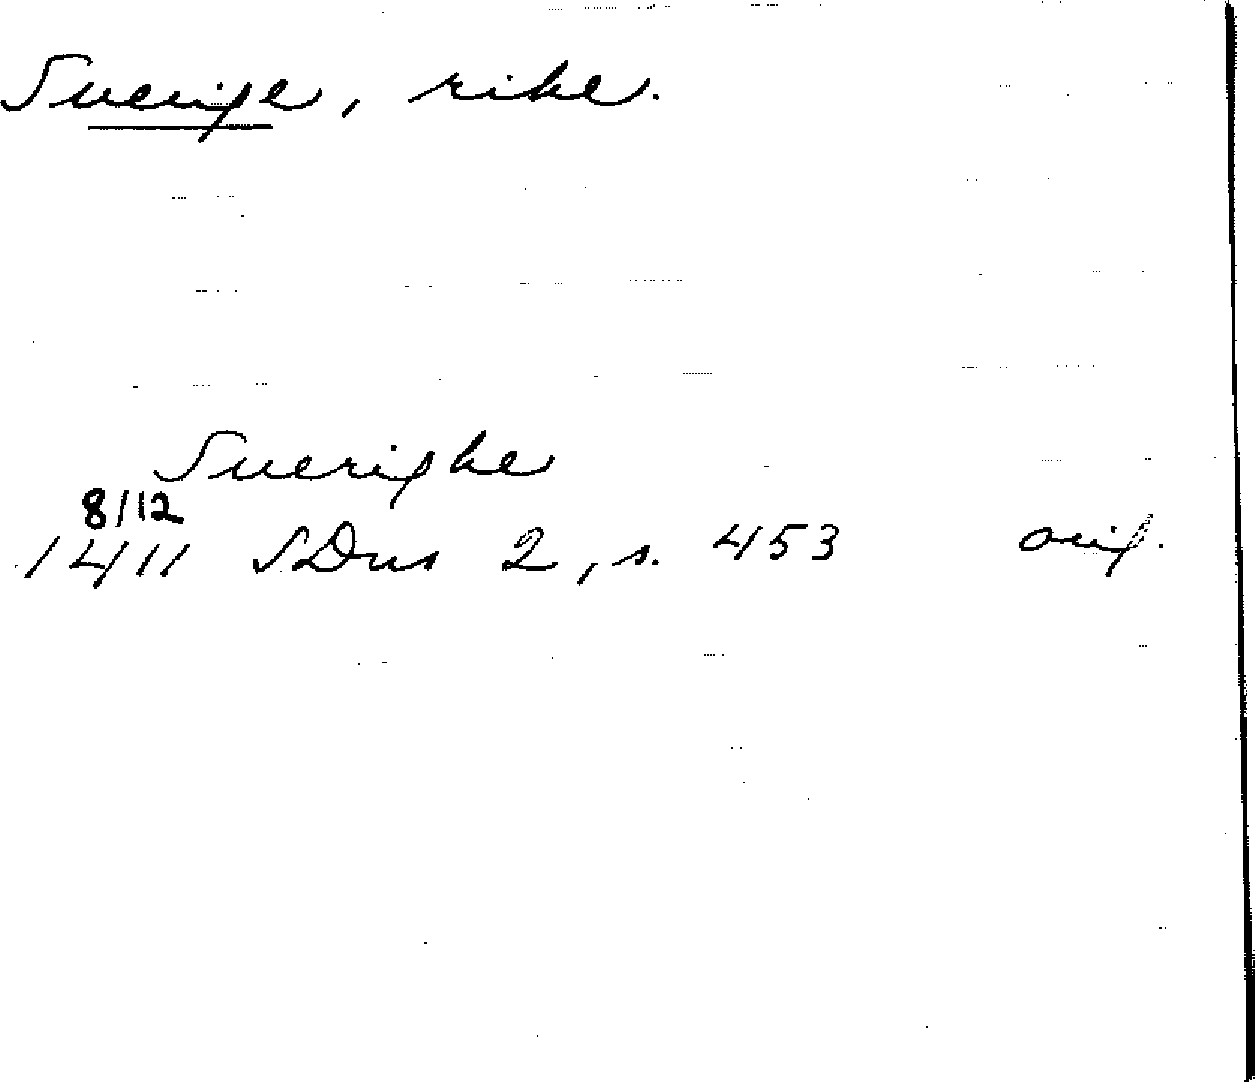 Sverige, rike.
Suerighe
8/12
1411 SDns 2, s. 453 orig.